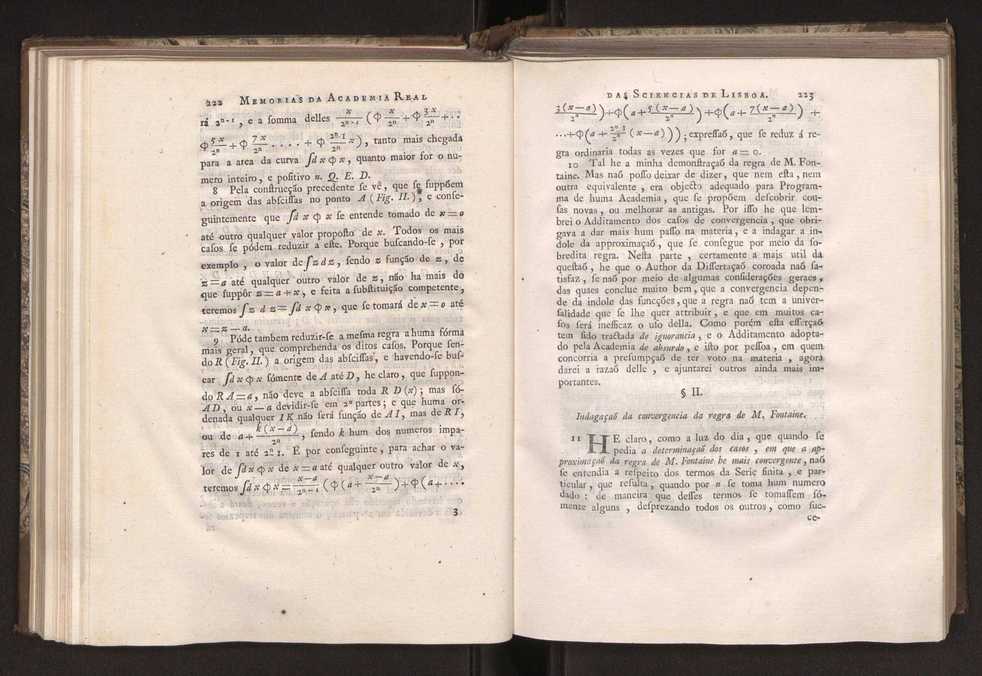 222 MEMORIAS DA ACADEMIA REAL
rá 2ⁿ⁻¹, e a somma delles x/2ⁿ⁻¹ (ϕ x/2ⁿ + ϕ 3x/2ⁿ + ..
ϕ 5x/2ⁿ + ϕ 7x/2ⁿ .... + ϕ 2ⁿ-1/2ⁿ x), tanto mais chegada
para a area da curva ſdxϕx, quanto maior for o nu-
mero inteiro, e poſitivo n. Q. E. D.
8 Pela conſtrucçaõ precedente ſe vê, que ſe ſuppõem
a origem das abſciſſas no ponto A (Fig. II.), e conſe-
guintemente que ſdxϕx ſe entende tomado de x=0
até outro qualquer valor propoſto de x. Todos os mais
caſos ſe pódem reduzir a eſte. Porque buſcando-ſe, por
exemplo, o valor de ſzdz, ſendo z funçaõ de z, de
z=a até qualquer outro valor de z, naõ ha mais do
que ſuppôr z=a+x, e feita a ſubſtituiçaõ competente,
teremos ſzdz=ſdxϕx, que ſe tomará de x=0 até
x=z-a.
9 Póde tambem reduzir-ſe a meſma regra a huma fórma
mais geral, que comprehenda os ditos caſos. Porque ſen-
do R (Fig. II.) a origem das abſciſſas, e havendo-ſe buſ-
car ſdxϕx ſómente de A até D, he claro, que ſuppon-
do RA=a, naõ deve a abſciſſa toda RD(x); mas ſó-
AD, ou x-a devidir-ſe em 2ⁿ partes; e que huma or-
denada qualquer IK naõ ſerá funçaõ de AI, mas de RI,
ou de a+ k(x-a)/2ⁿ, ſendo k hum dos numeros impa-
res de 1 até 2ⁿ-1. E por conſeguinte, para achar o va-
lor de ſdxϕx de x=a até qualquer outro valor de x,
teremos ſdxϕx= x-a/2ⁿ⁻¹ (ϕ(a+ x-a/2ⁿ)+ϕ(a+....
3
DAS SCIENCIAS DE LISBOA. 223
3(x-a)/2ⁿ)+ϕ(a+ 5(x-a)/2ⁿ)+ϕ(a+ 7(x-a)/2ⁿ) +
...+ϕ(a+ 2ⁿ-1/2ⁿ (x-a))); expreſſaõ, que ſe reduz á re-
gra ordinaria todas as vezes que for a=0.
10 Tal he a minha demonſtraçaõ da regra de M. Fon-
taine. Mas naõ poſſo deixar de dizer, que nem eſta, nem
outra equivalente, era objecto adequado para Program-
ma de huma Academia, que ſe propõem deſcobrir cou-
ſas novas, ou melhorar as antigas. Por iſſo he que lem-
brei o Additamento dos caſos de convergencia, que obri-
gava a dar mais hum paſſo na materia, e a indagar a in-
dole da approximaçaõ, que ſe conſegue por meio da ſo-
bredita regra. Neſta parte, certamente a mais util da
queſtaõ, he que o Author da Diſſertaçaõ coroada naõ ſa-
tisfaz, ſe naõ por meio de algumas conſiderações geraes,
das quaes conclue muito bem, que a convergencia depen-
de da indole das funcções, que a regra naõ tem a univer-
ſalidade que ſe lhe quer attribuir, e que em muitos ca-
ſos ſerá inefficaz o uſo della. Como porém eſta eſſerçaõ
tem ſido tractada de ignorancia, e o Additamento adopta-
do pela Academia de abſurdo, e iſto por peſſoa, em quem
concorria a preſumpçaõ de ter voto na materia, agora
darei a razaõ delle, e ajuntarei outros ainda mais im-
portantes.
§ II.
Indagaçaõ da convergencia da regra de M. Fontaine.
11 HE claro, como a luz do dia, que quando ſe
pedia a determinaçaõ dos caſos, em que a ap-
proximaçaõ da regra de M. Fontaine he mais convergente, naõ
ſe entendia a reſpeito dos termos da Serie finita, e par-
ticular, que reſulta, quando por n ſe toma hum numero
dado: de maneira que deſſes termos ſe tomaſſem ſó-
mente alguns, deſprezando todos os outros, como ſuc-
ce-